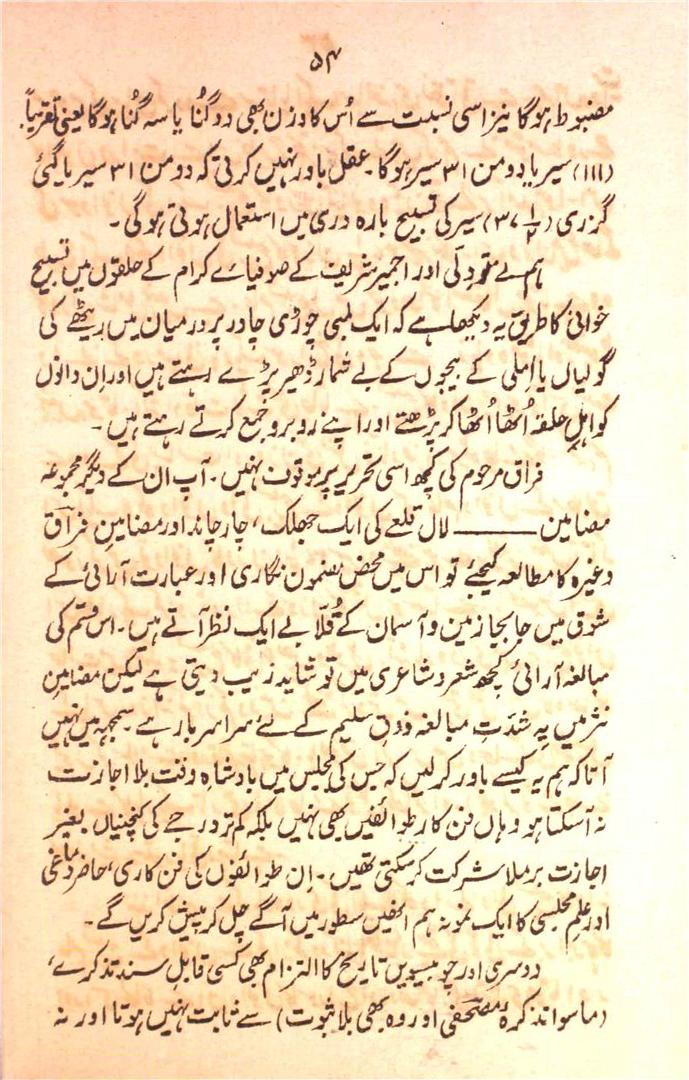 ۵۴
مضبوط ہوگا نیز اسی نسبت سے اُس کا وزن بھی دو گُنا یا سہ گُنا ہوگا یعنی تقریباً
(۱۱۱) سیر یا دو من ۳۱ سیر ہوگا۔ عقل باور نہیں کرتی کہ دو من ۳۱ سیر یا گئی
گزری (۳۷ ۱/۲) سیر کی تسبیح بارہ دری میں استعمال ہوتی ہوگی۔
ہم نے خود دلّی اور اجمیر شریف کے صوفیائے کرام کے حلقوں میں تسبیح
خوانی کا طریق یہ دیکھا ہے کہ ایک لمبی چوڑی چادر پر درمیان میں ریٹھے کی
گولیاں یا اِملی کے بیجوں کے بے شمار ڈھیر پڑے رہتے ہیں اور اِن دانوں
کو اہلِ حلقہ اُٹھا اُٹھا کر پڑھتے اور اپنے روبرو جمع کرتے رہتے ہیں۔
فراق مرحوم کی کچھ اسی تحریر پر موقوف نہیں۔ آپ ان کے دیگر مجموعہ
مضامین ——— لال قلعے کی ایک جھلک، چار چاند اور مضامینِ فراقؔ
وغیرہ کا مطالعہ کیجئے تو اس میں محض مضمون نگاری اور عبارت آرائی کے
شوق میں جا بجا زمین و آسمان کے قُلّابے ایک نظر آتے ہیں۔ اس قسم کی
مبالغہ آرائی کچھ شعر و شاعری میں تو شاید زیب دیتی ہے لیکن مضامینِ
نثر میں یہ شدّتِ مبالغہ ذوقِ سلیم کے لئے سراسر بار ہے۔ سمجھ میں نہیں
آتا کہ ہم یہ کیسے باور کر لیں کہ جس کی مجلس میں بادشاہِ وقت بلا اجازت
نہ آسکتا ہو وہاں فن کار طوائفیں بھی نہیں بلکہ کم تر درجے کی کنچنیاں بغیر
اجازت برملا شرکت کر سکتی تھیں۔ اِن طوائفوں کی فن کاری، حاضر دماغی
اور علمِ مجلسی کا ایک نمونہ ہم انھیں سطور میں آگے چل کر پیش کریں گے۔
دوسری اور چوبیسویں تاریخ کا التزام بھی کسی قابلِ سند تذکرے،
(ماسوا تذکرۂ مصحفی اور وہ بھی بلا ثبوت) سے ثابت نہیں ہوتا اور نہ